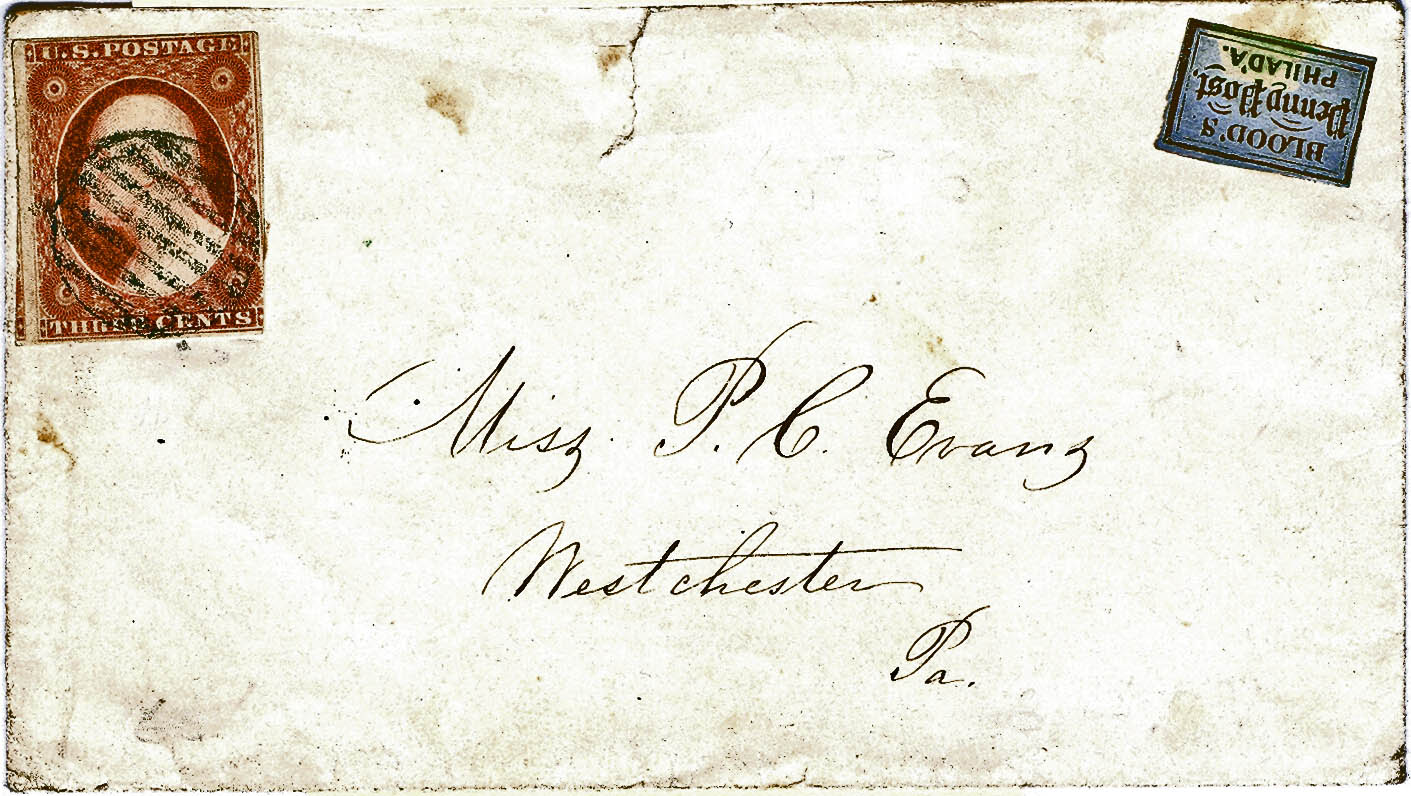 U.S. POSTAGE
THREE CENTS
BLOOD'S
Penny Post,
PHILAD'A.
Miss P. C. Evans
Westchester
Pa.